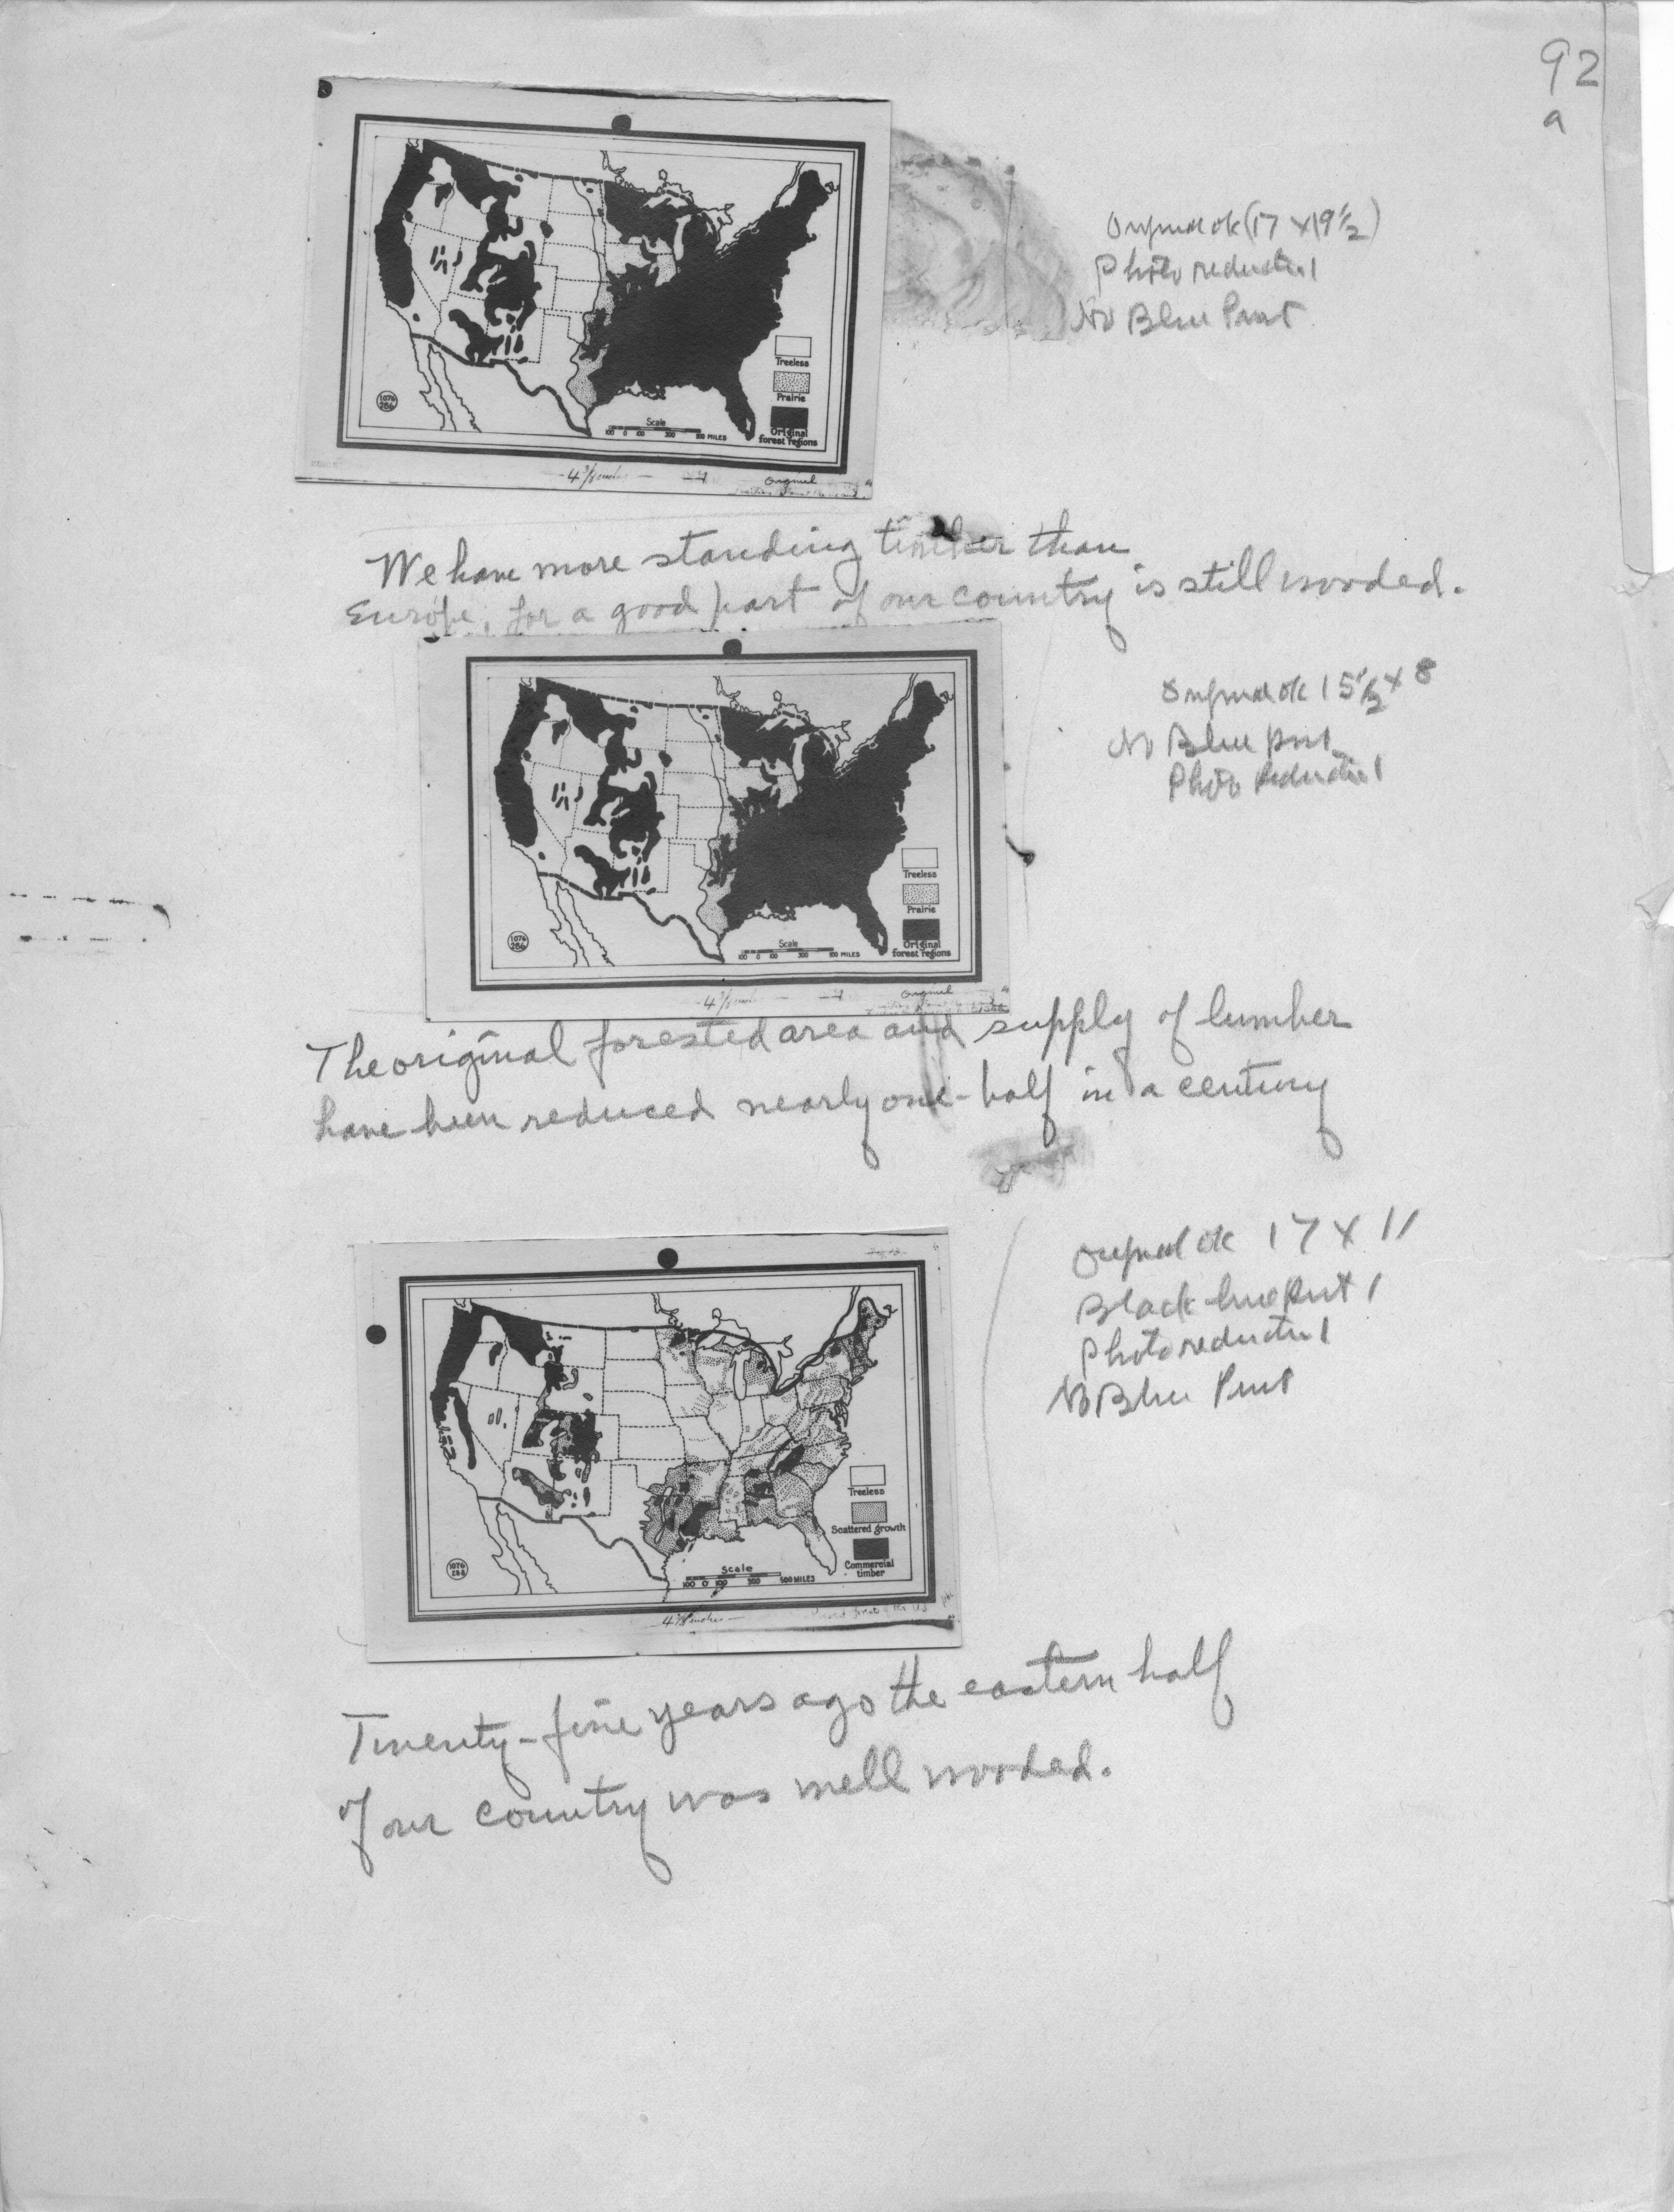 92
a
Original ok (17 x 19 1/2)
Photo reduction 1
No Blue Print
Treeless
Prairie
Original
forest regions
Scale
100 0 100 300 500 MILES
1076
286
4 7/8 inches
Original
We have more standing timber than
Europe, for a good part of our country is still wooded.
Original ok 15 1/2 x 8
No Blue print
Photo Reduction 1
Treeless
Prairie
Original
forest regions
Scale
100 0 100 300 500 MILES
1076
286
4 7/8
Original
The original forested area and supply of lumber
have been reduced nearly one-half in a century
Original ok 17 x 11
Black line Print 1
Photo reduction 1
No Blue Print
Treeless
Scattered growth
Commercial
timber
Scale
100 0 100 300 500 MILES
1076
288
4 7/8 inches
Twenty-five years ago the eastern half
of our country was well wooded.